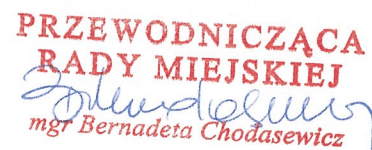 PRZEWODNICZĄCA
RADY MIEJSKIEJ
mgr Bernadeta Chodasewicz